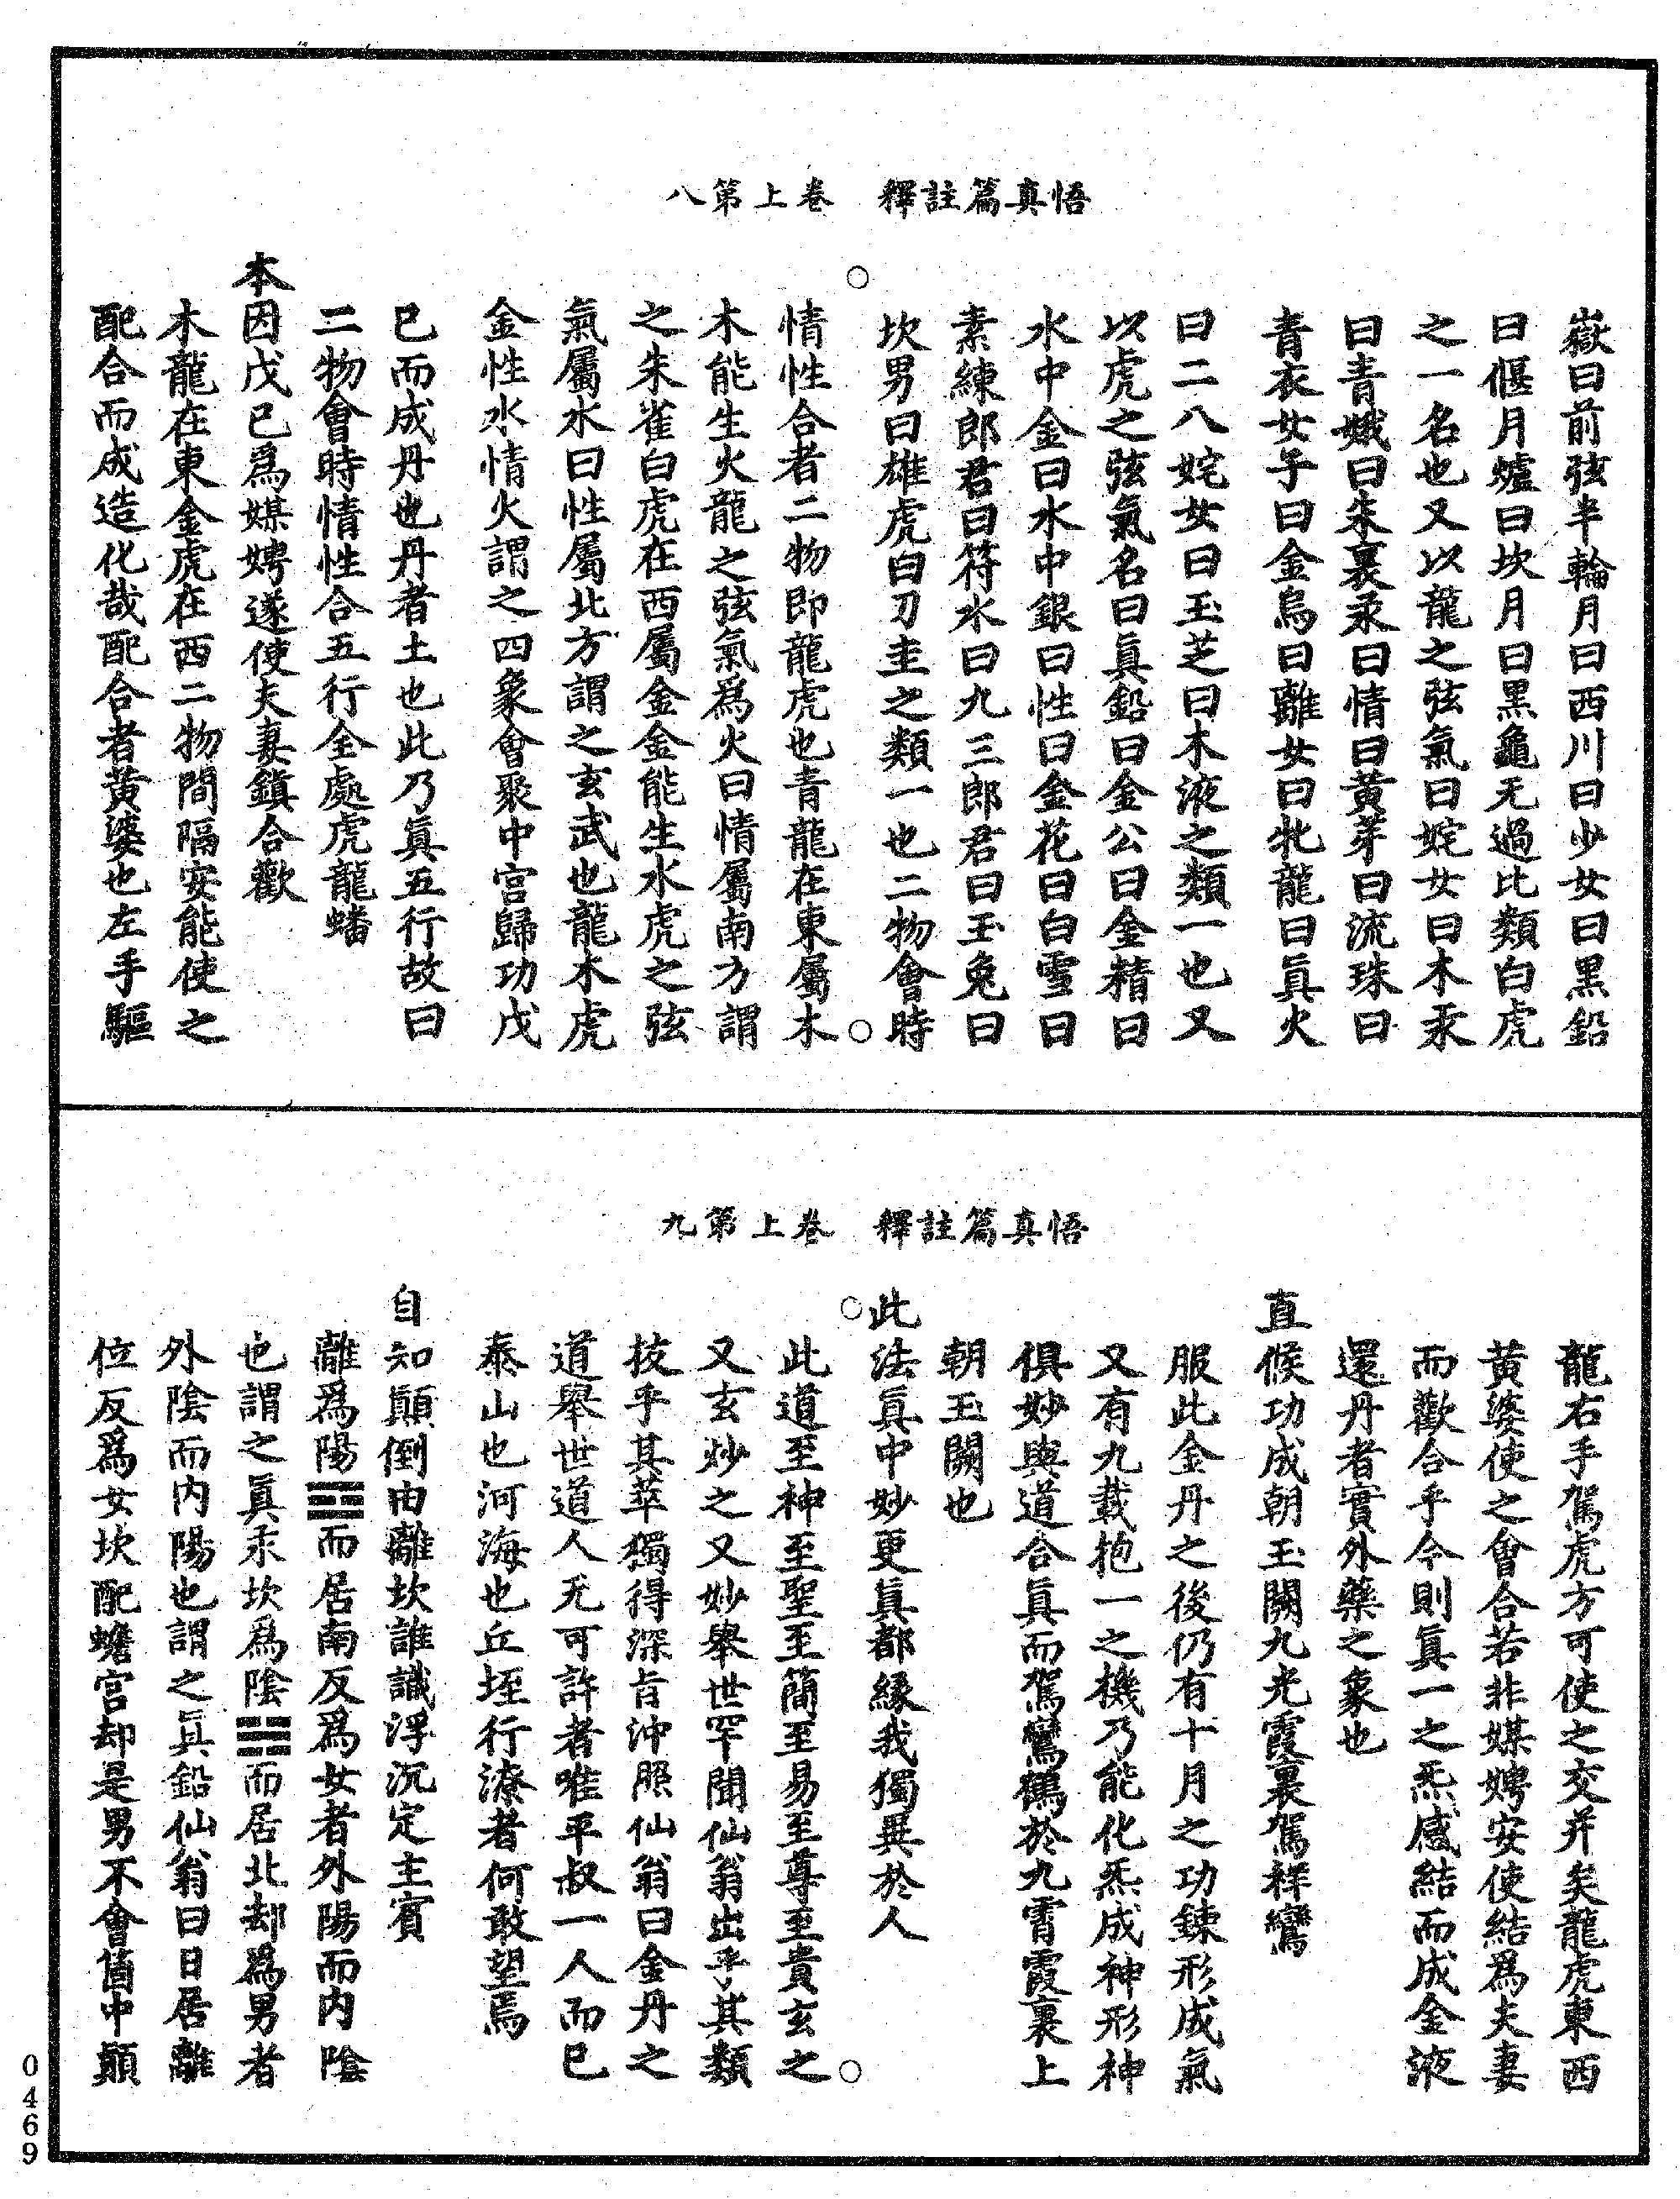 悟真篇註釋　卷上第八
嶽曰前弦半輪月曰西川曰少女曰黑鉛
曰偃月爐曰坎月曰黑龜无過比類白虎
之一名也又以龍之弦氣曰姹女曰木汞
曰青娥曰朱裏汞曰情曰黃芽曰流珠曰
青衣女子曰金烏曰離女曰牝龍曰眞火
曰二八姹女曰玉芝曰木液之類一也又
以虎之弦氣名曰眞鉛曰金公曰金精曰
水中金曰水中銀曰性曰金花曰白雪曰
素練郎君曰符水曰九三郎君曰玉兔曰
坎男曰雄虎曰刀圭之類一也二物會時
情性合者二物即龍虎也青龍在東屬木
木能生火龍之弦氣爲火曰情屬南方謂
之朱雀白虎在西屬金金能生水虎之弦
氣屬水曰性屬北方謂之玄武也龍木虎
金性水情火謂之四象會聚中宮歸功戊
巳而成丹也丹者土也此乃眞五行故曰
二物會時情性合五行全處虎龍蟠
本因戊巳爲媒娉遂使夫妻鎭合歡
木龍在東金虎在西二物間隔安能使之
配合而成造化哉配合者黃婆也左手驅
悟真篇註釋　卷上第九
龍右手駕虎方可使之交并矣龍虎東西
黃婆使之會合若非媒娉安使結爲夫妻
而歡合乎今則眞一之炁感結而成金液
還丹者實外藥之象也
直候功成朝玉闕九光霞裏駕祥鸞
服此金丹之後仍有十月之功鍊形成氣
又有九載抱一之機乃能化炁成神形神
俱妙與道合眞而駕鸞鶴於九霄霞裏上
朝玉闕也
此法眞中妙更眞都緣我獨異於人
此道至神至聖至簡至易至尊至貴玄之
又玄妙之又妙舉世罕聞仙翁出乎其類
拔乎其萃獨得深旨沖熙仙翁曰金丹之
道舉世道人无可許者唯平叔一人而巳
泰山也河海也丘垤行潦者何敢望焉
自知顚倒由離坎誰識浮沉定主賓
離爲陽☲而居南反爲女者外陽而内陰
也謂之眞汞坎爲陰☵而居北却爲男者
外陰而内陽也謂之眞鉛仙翁曰日居離
位反爲女坎配蟾宮却是男不會箇中顚
0469